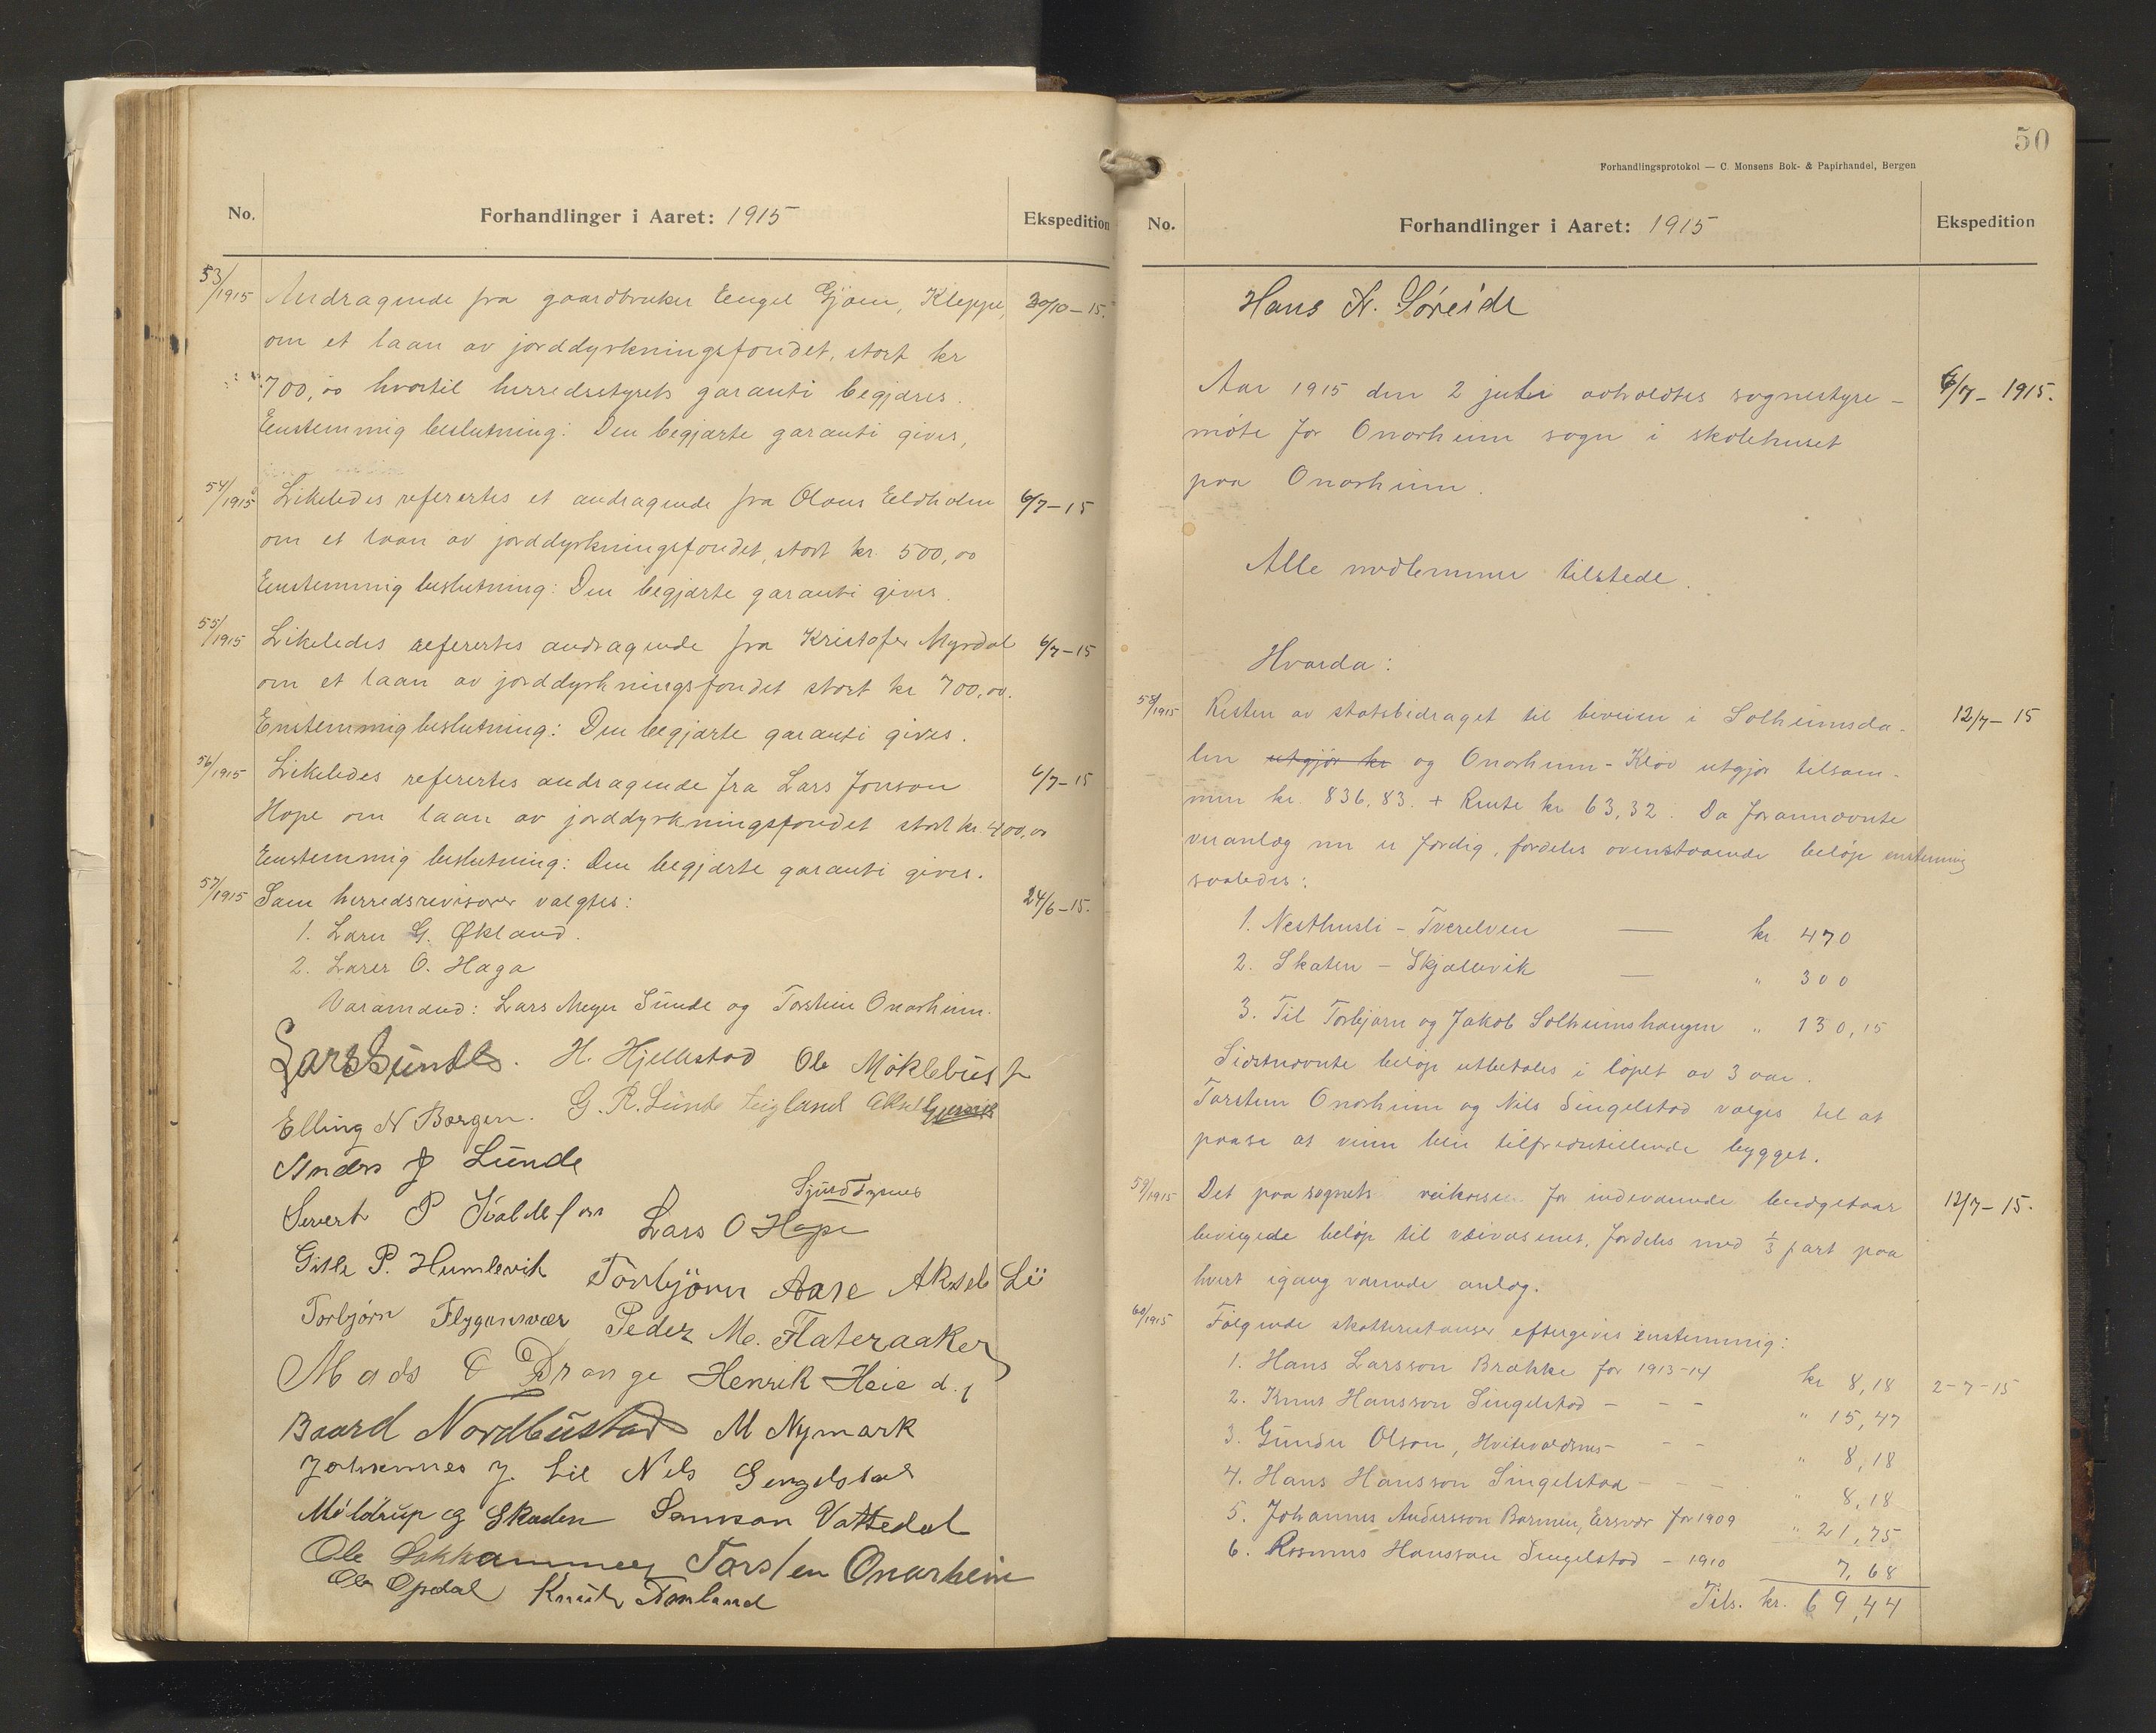 No.
Forhandlinger i Aaret: 1915
Ekspedition
53/1915 Andragende fra gaardbruker Engel Gjøen, Kleppe, 30/10-15.
om et laan av jorddyrkningsfondet, stort kr
700,00 hvortil herredsstyrets garanti begjæres.
Enstemmig beslutning: Den begjærte garanti gives,
54/1915 Likeledes refertes et andragende fra Olaus Eeldholm 6/7-15
om et laan av jorddyrkningsfondet, stort kr. 500,00
Enstemmig beslutning: Den begjærte garanti gives.
55/1915 Likeledes refertes andragende fra Kristofer Myrdal 6/7-15
om et laan av jorddyrkningsfondet stort kr 700,00.
Enstemmig beslutning: Den begjærte garanti gives.
56/1915 Likeledes refertes andragende fra Lars Jonson 6/7-15
Hope om laan av jorddyrkningsfondet stort kr. 400,00
Enstemmig beslutning: Den begjærte garanti gives.
57/1915 Som herredsrevisorer valgtes: 24/6-15.
1. Lærer G. Økland.
2. Lærer O. Haga
Varamænd: Lars Meyer Sunde og Torstein Onarheim.
Lars Sunde. H. Hjellestad Ole Møklebust
Elling N Borgen. G. R. Sunde Teigland Aksel
Anders J Lunde
Sjurd Fysnes
Severt P Lars O Hope
Gitle P. Humlevik Torbjørn Aase Aksel Li
Torbjørn Flygansvær Peder M. Flateraaker
Mads O Drange Henrik Heie d. y
Baard Nordbustad M Nymark
Johannes J. Lie Nils Sengelstad
Møldrup og Skaden Samson Vattedal
Ole Sokkammer Torsten Onarheim
Ole Opdal Knut Tronland
50
Forhandlingsprotokol — C. Monsens Bok- & Papirhandel, Bergen
No.
Forhandlinger i Aaret: 1915
Ekspedition
Hans N. Søreide
Aar 1915 den 2 juli avholdtes sognestyre- 6/7-1915.
møte for Onarheim sogn i skolehuset
paa Onarheim.
Alle medlemmer tilstede.
Hvorda:
58/1915 Resten av statsbidraget til beveien i Solheimsda- 12/7-15
len utgjør kr og Onarheim-Kløv utgjør tilsam-
men kr. 836,83. + Rente kr 63,32. Da forannævnte
veianlæg nu er færdig, fordeles ovenstaaende beløp enstemmig
saaledes:
1. Nesthusli - Tverelven — kr 470
2. Skaten - Skjælevik — " 300
3. Til Torbjørn og Jakob Solheimshaugen " 130,15
Sidstnævnte beløp utbetales i løpet av 3 aar.
Torstein Onarheim og Nils Singelstad vælges til at
paase at veien blir tilfredsstillende bygget.
59/1915 Det paa sognets veikasse for indeværende budgetaar 12/7-15.
bevilgede beløp til veivæsenet, fordeles med 1/3 part paa
hvert igangværende anlæg.
60/1915 Følgende skatterestanser eftergives enstemmig:
1. Hans Larsson Brække for 1913-14 kr 8,18 2-7-15
2. Knut Hansson Singelstad - - - " 15,47
3. Gunder Olson, Hvitevoldsnes - - - " 8,18
4. Hans Hansson Singelstad - - - " 8,18
5. Johannes Andersson Barmen, Eersvær for 1909 " 21,75
6. Rasmus Hansson Singelstad - 1910 7,68
Tils. kr. 69,44